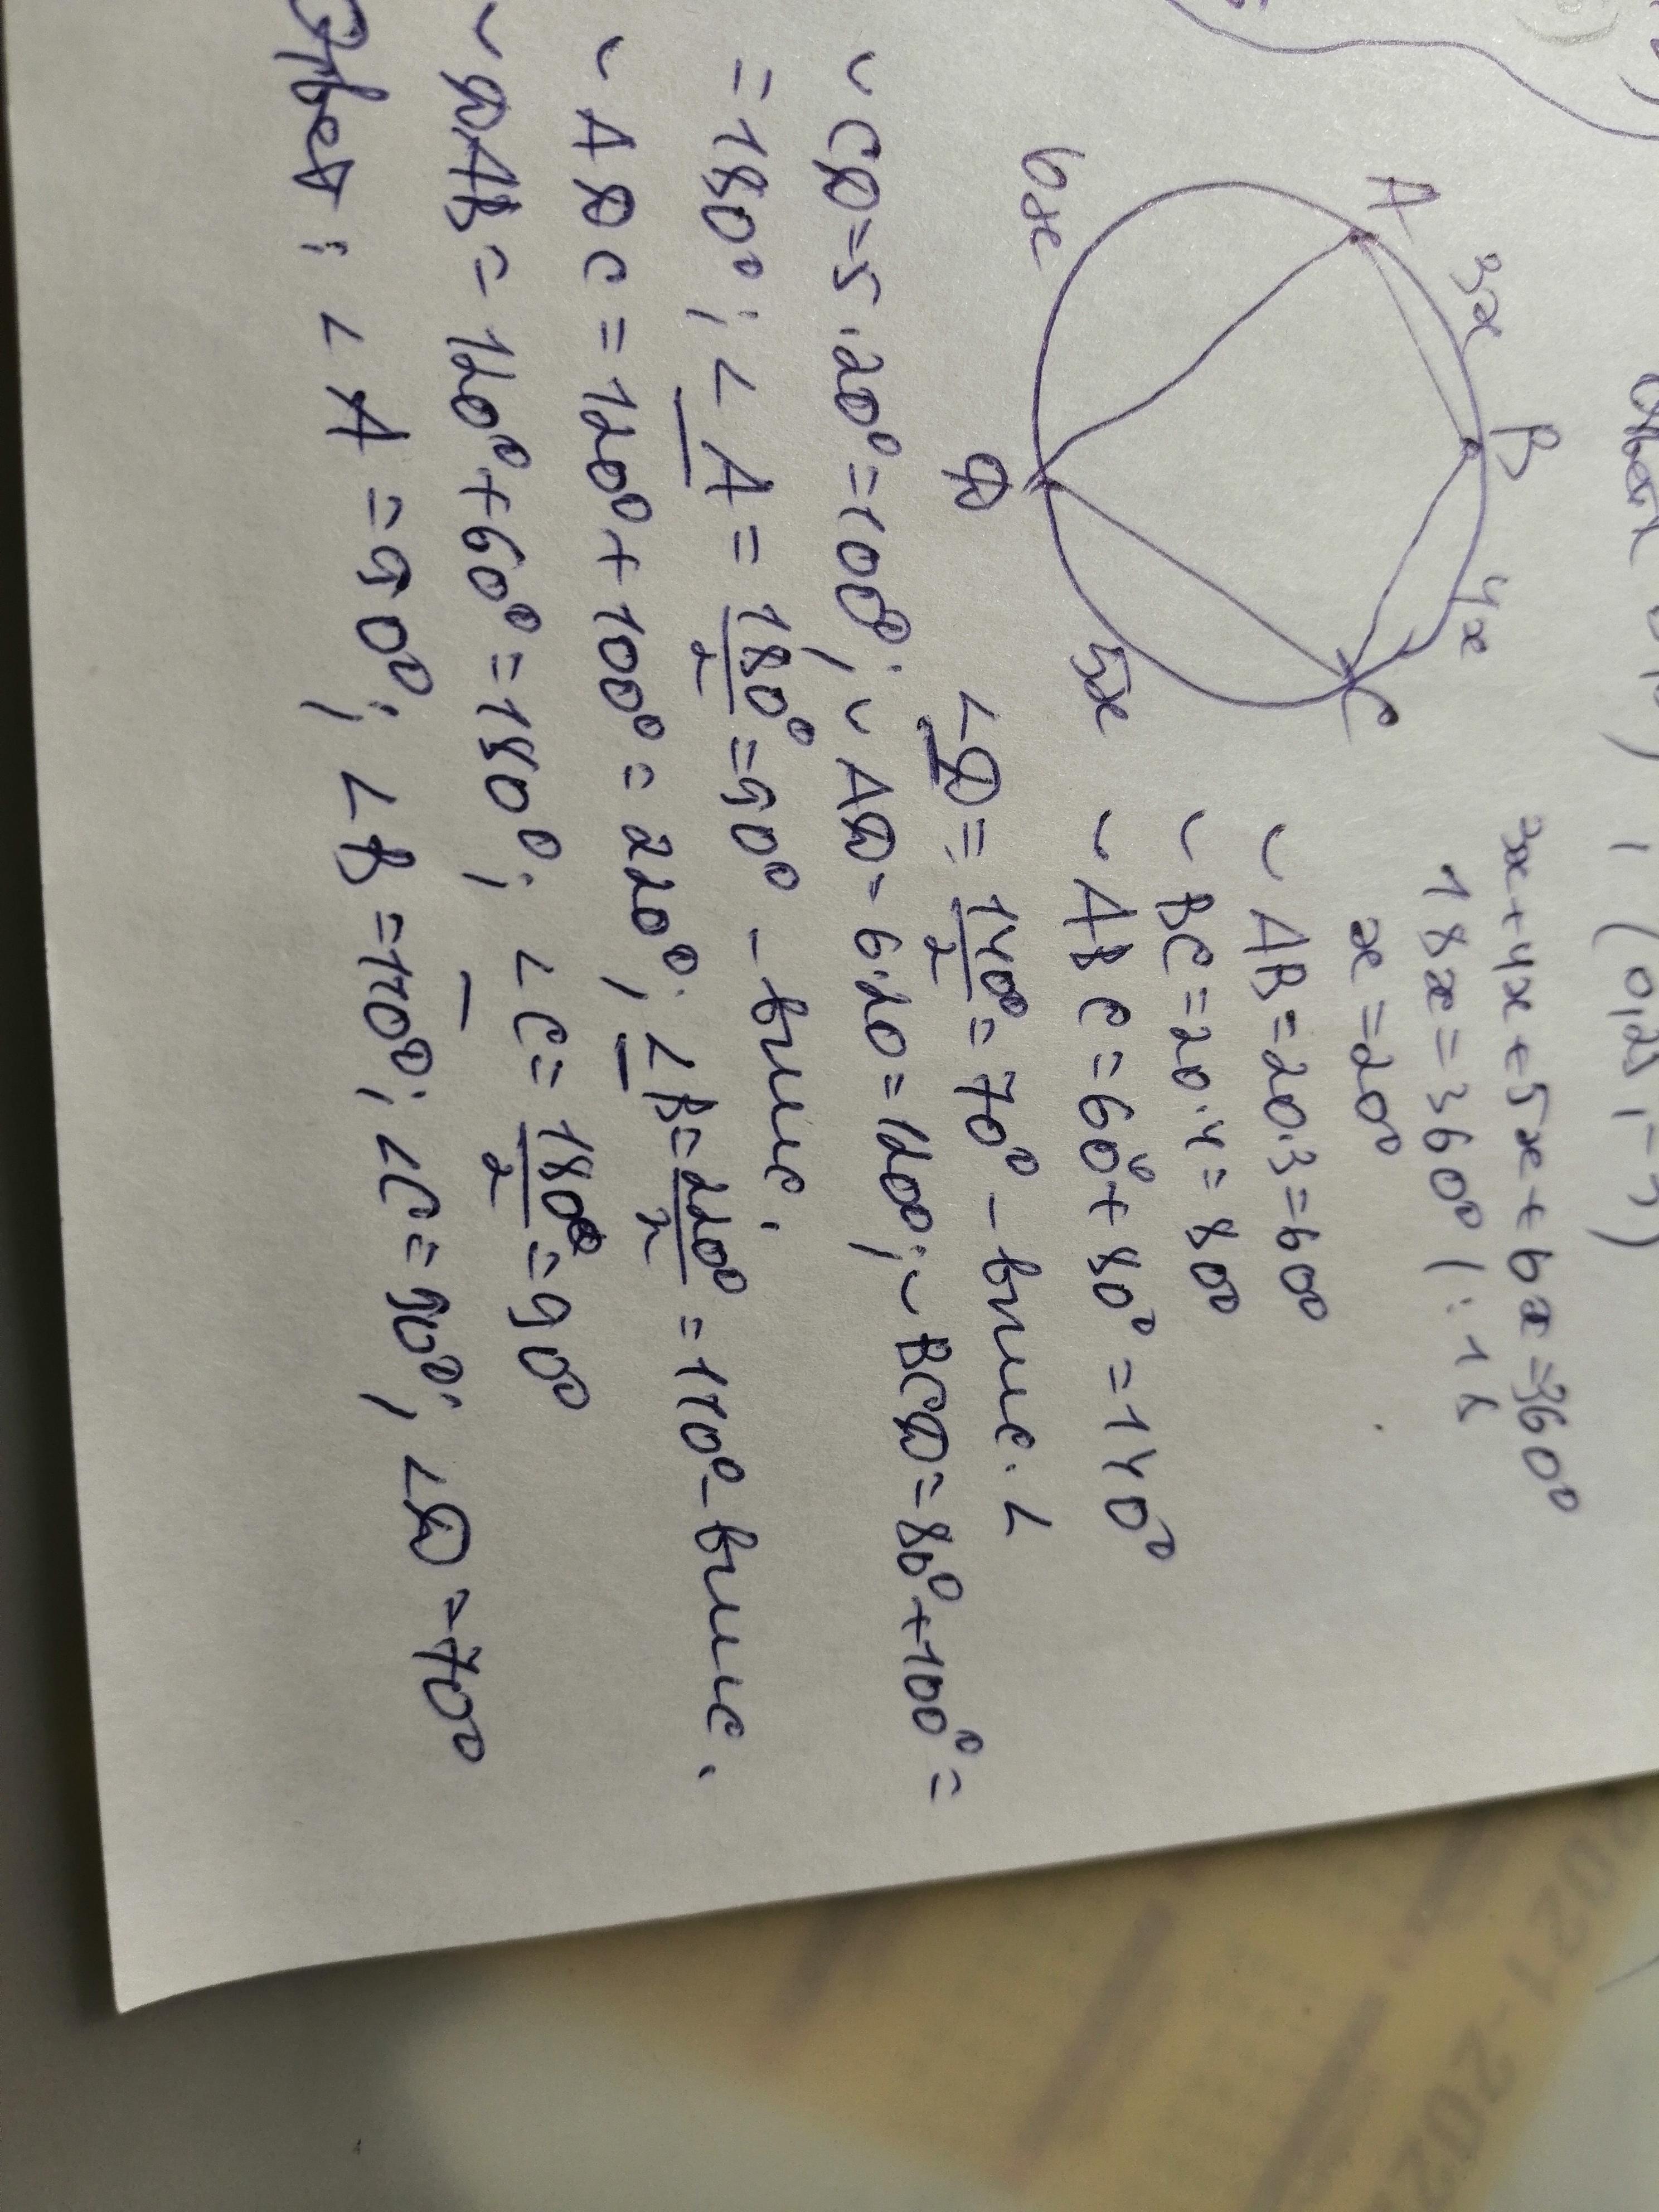 Ответ
(0,25; -3)
3x+4x+5x+6x=360°
18x=360° | :18
x=20°
A
3x
B
4x
C
5x
D
6x
◡AB=20·3=60°
◡BC=20·4=80°
◡ABC=60°+80°=140°
∠D=140°/2=70° - впис. ∠
◡CD=5·20°=100°; ◡AD=6·20=120°; ◡BCD=80°+100°=
=180°; ∠A=180°/2=90° - впис.
◡ADC=120°+100°=220°; ∠B=220°/2=110° - впис.
◡DAB=120°+60°=180°; ∠C=180°/2=90°
Ответ: ∠A=90°; ∠B=110°; ∠C=90°; ∠D=70°
2021-202